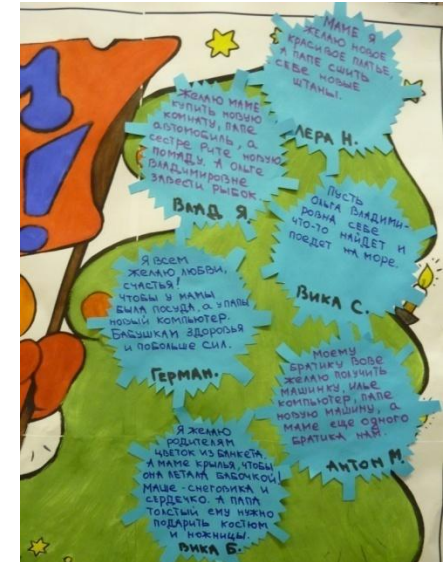 МАМЕ Я
ЖЕЛАЮ НОВОЕ
КРАСИВОЕ ПЛАТЬЕ,
А ПАПЕ СШИТЬ
СЕБЕ НОВЫЕ
ШТАНЫ.
ЛЕРА Н.
ЖЕЛАЮ МАМЕ
КУПИТЬ НОВУЮ
КОМНАТУ, ПАПЕ
АВТОМОБИЛЬ, А
СЕСТРЕ РИТЕ НОВУЮ
ПОМАДУ. А ОЛЬГЕ
ВЛАДИМИРОВНЕ
ЗАВЕСТИ РЫБОК.
ВЛАД Я.
ПУСТЬ
ОЛЬГА ВЛАДИМИ-
РОВНА СЕБЕ
ЧТО-ТО НАЙДЕТ И
ПОЕДЕТ НА МОРЕ.
ВИКА С.
Я ВСЕМ
ЖЕЛАЮ ЛЮБВИ,
СЧАСТЬЯ!
ЧТОБЫ У МАМЫ
БЫЛА ПОСУДА, А У ПАПЫ
НОВЫЙ КОМПЬЮТЕР.
БАБУШКАМ ЗДОРОВЬЯ
И ПОБОЛЬШЕ СИЛ.
ГЕРМАН.
МОЕМУ
БРАТИКУ ВОВЕ
ЖЕЛАЮ ПОЛУЧИТЬ
МАШИНКУ, ИЛЬЕ
КОМПЬЮТЕР, ПАПЕ
НОВУЮ МАШИНУ, А
МАМЕ ЕЩЕ ОДНОГО
БРАТИКА НАМ.
АНТОН М.
Я ЖЕЛАЮ
РОДИТЕЛЯМ
ЦВЕТОК ИЗ БАНКЕТА.
А МАМЕ КРЫЛЬЯ, ЧТОБЫ
ОНА ЛЕТАЛА БАБОЧКОЙ!
МАШЕ - СНЕГОВИКА И
СЕРДЕЧКО. А ПАПА
ТОЛСТЫЙ ЕМУ НУЖНО
ПОДАРИТЬ КОСТЮМ
И НОЖНИЦЫ.
ВИКА Б.